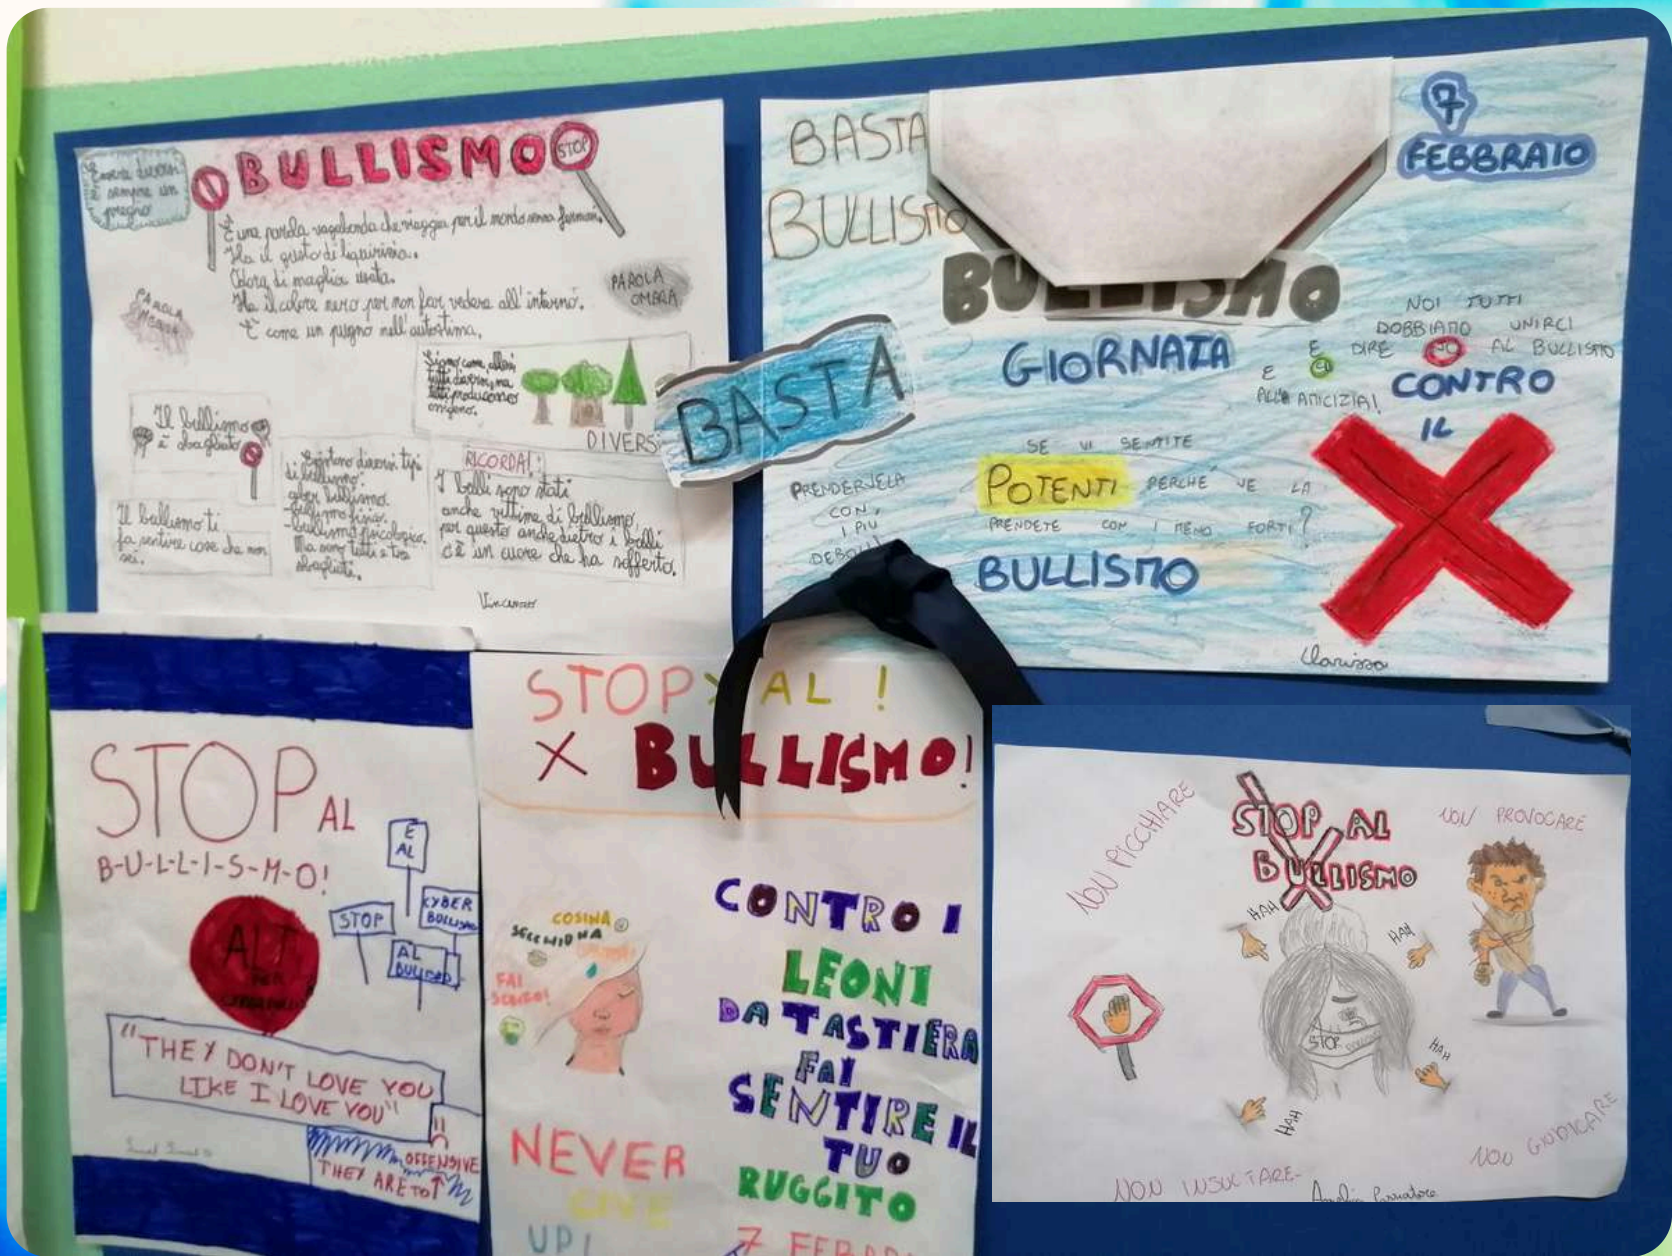 BULLISMO
STOP
Essere diversi
sempre un
pregio
È una parola vagabonda che viaggia per il mondo senza fermarsi.
Ha il gusto di liquirizia.
Odora di maglia usata.
Ha il colore nero per non far vedere all'interno.
È come un pugno nell'autostima.
PAROLA
OMBRA
PAROLA
Siamo come alberi
tutti diversi, ma
tutti produciamo
ossigeno.
DIVERSI
Il bullismo
è sbagliato
Il bullismo ti
fa sentire cose che non
sei.
Esistono diversi tipi
di bullismo:
-cyber bullismo.
-bullismo fisico.
-bullismo psicologico.
Ma sono tutti e tre
sbagliati.
RICORDA!:
I bulli sono stati
anche vittime di bullismo,
per questo anche dietro i bulli
c'è un cuore che ha sofferto.
Vincenzo
BASTA
BULLISMO
7
FEBBRAIO
BULLISMO
BASTA
GIORNATA
NOI TUTTI
DOBBIAMO UNIRCI
E DIRE NO AL BULLISMO
E SI
ALL'AMICIZIA!
CONTRO
IL
SE VI SENTITE
POTENTI PERCHÉ VE LA
PRENDETE CON I MENO FORTI?
PRENDERVELA
CON
I PIÙ
DEBOLI
BULLISMO
Clarissa
STOP AL
B-U-L-L-I-S-M-O!
E
AL
STOP
CYBER
BULLISMO
AL
BULLISMO
ALT
PER
"THEY DON'T LOVE YOU
LIKE I LOVE YOU"
OFFENSIVE
THEY ARE TOT
STOP AL !
X BULLISMO!
COSINA
SECCHIONA
FAI
SCHIFO!
CONTRO I
LEONI
DA TASTIERA
FAI
SENTIRE IL
TUO
RUGGITO
NEVER
GIVE
UP!
7 FEBBR
STOP AL
BULLISMO
NON PICCHIARE
NON PROVOCARE
HAH
HAH
STOP
HAH
HAH
NON INSULTARE-
NON GIUDICARE